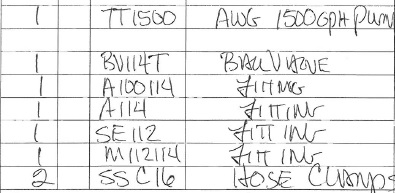 1 TT1500 AWG 1500GPH PUM
1 BV114T BALL VALVE
1 A100114 FITTING
1 A114 FITTING
1 SE112 FITTING
1 M112114 FITTING
2 SSC16 HOSE CLAMPS